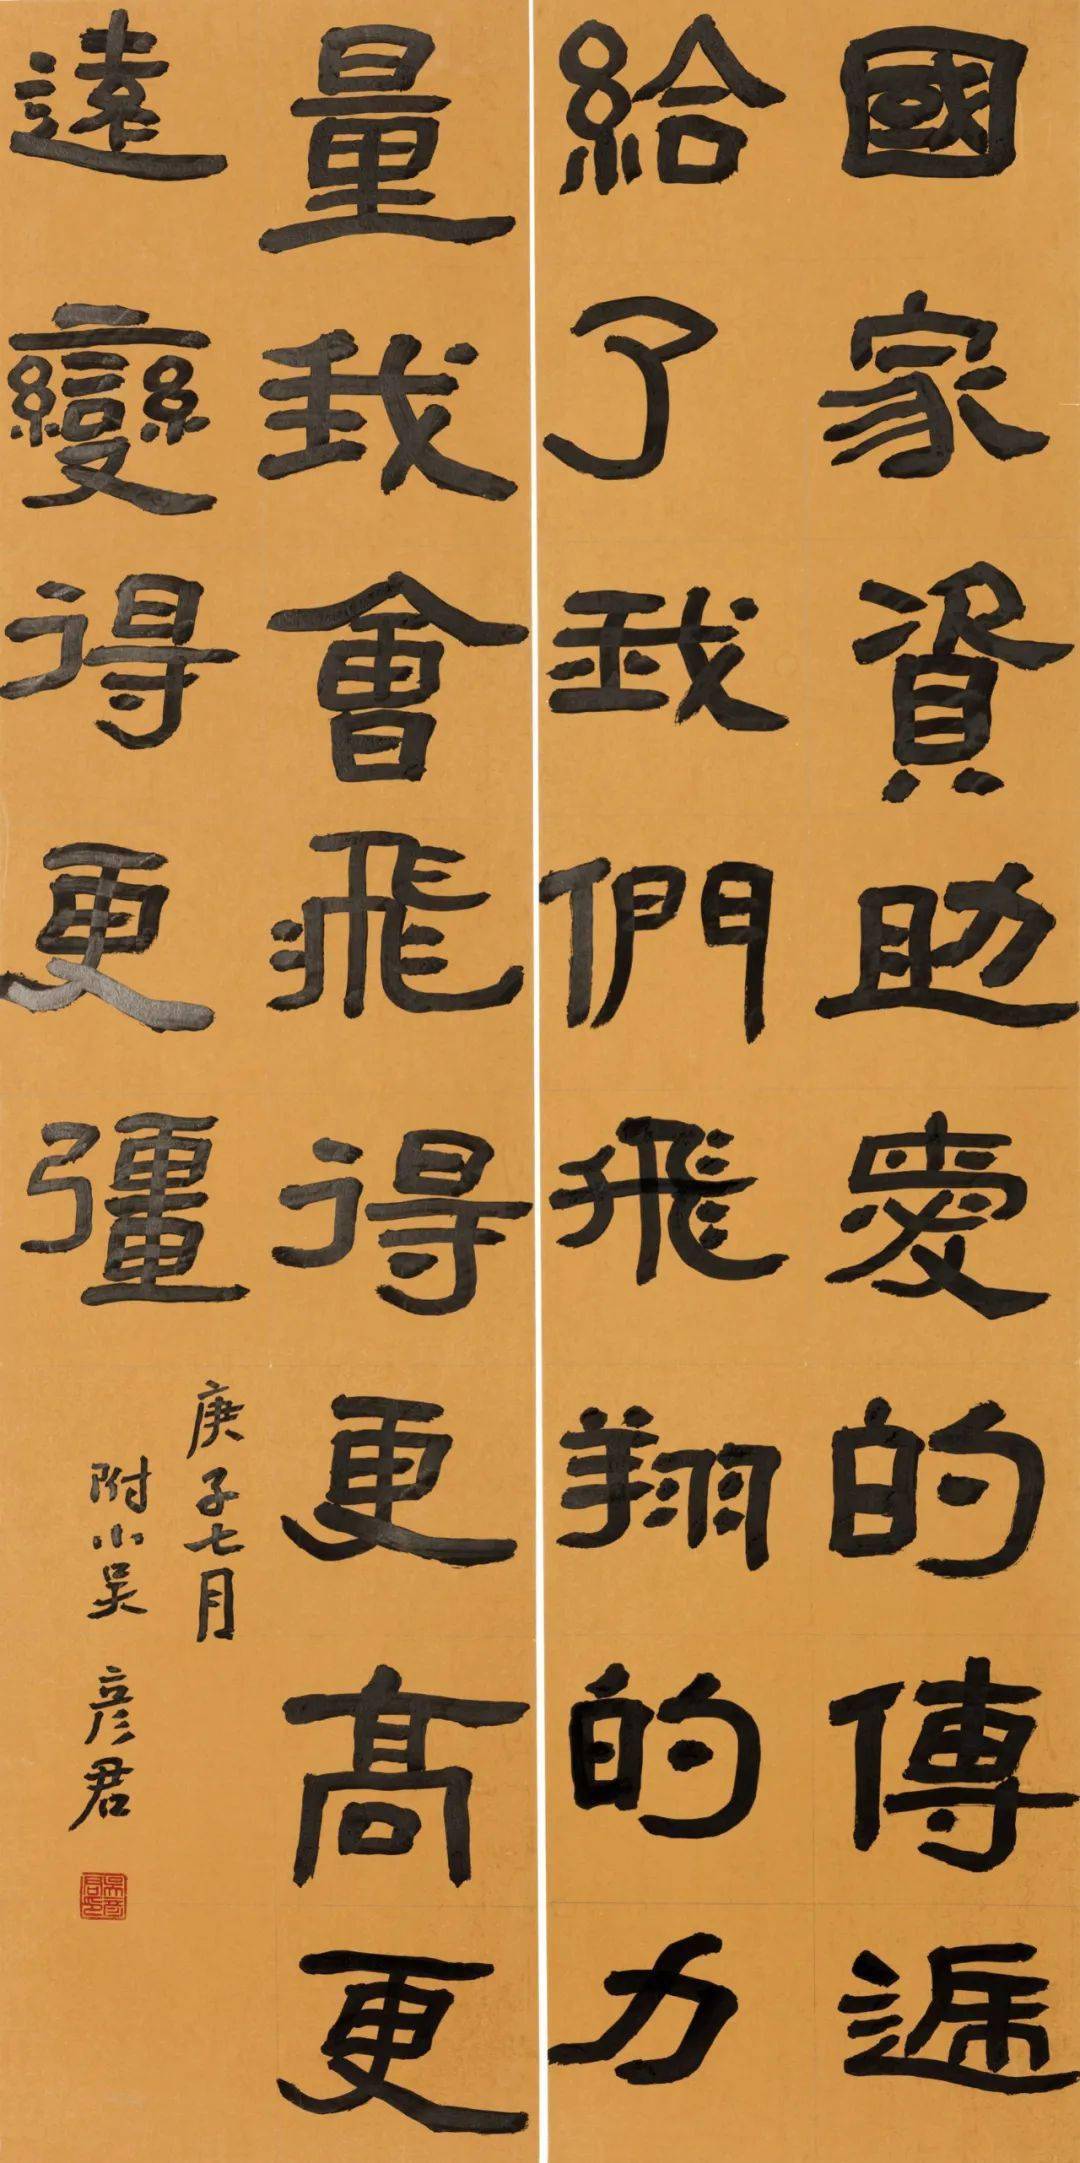 國家資助愛的傳遞
給了我們飛翔的力
量我會飛得更高更
遠變得更彊
庚子七月
附小吴彦君
吴彦君印